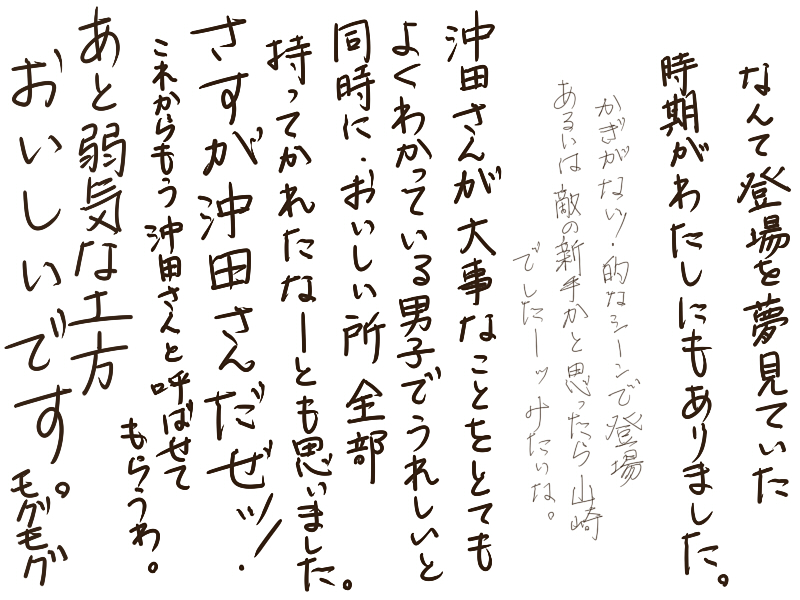 なんて登場を夢見ていた
時期がわたしにもありました。
かぎがないッ・的なシーンで登場
あるいは敵の新手かと思ったら山崎
でしたーッみたいな。
沖田さんが大事なことをとても
よくわかっている男子でうれしいと
同時に・おいしい所全部
持ってかれたなーとも思いました。
さすが沖田さんだぜッ!
これからもう沖田さんと呼ばせて
もらうわ。
あと弱気な土方
おいしいです。モグモグ